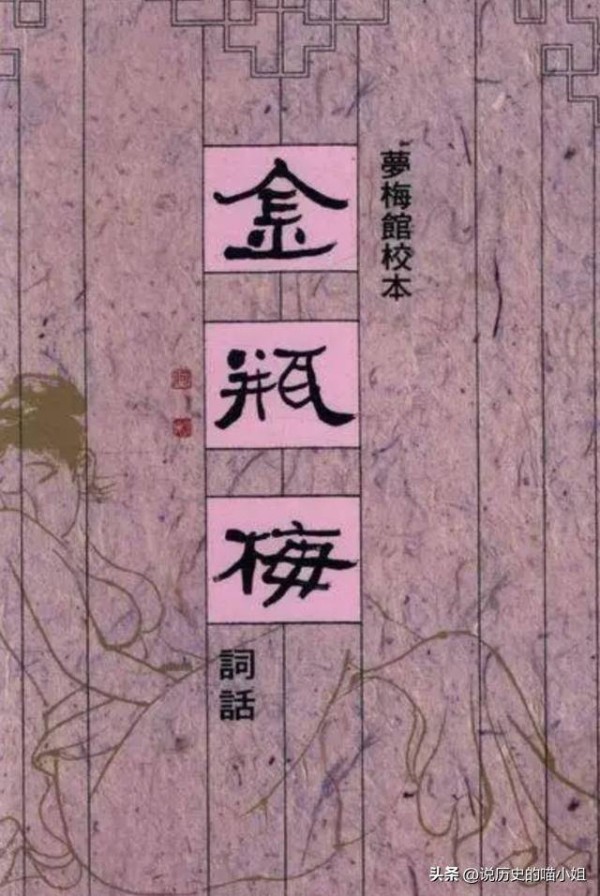 夢梅館校本
金瓶梅
詞話
头条 @说历史的喵小姐